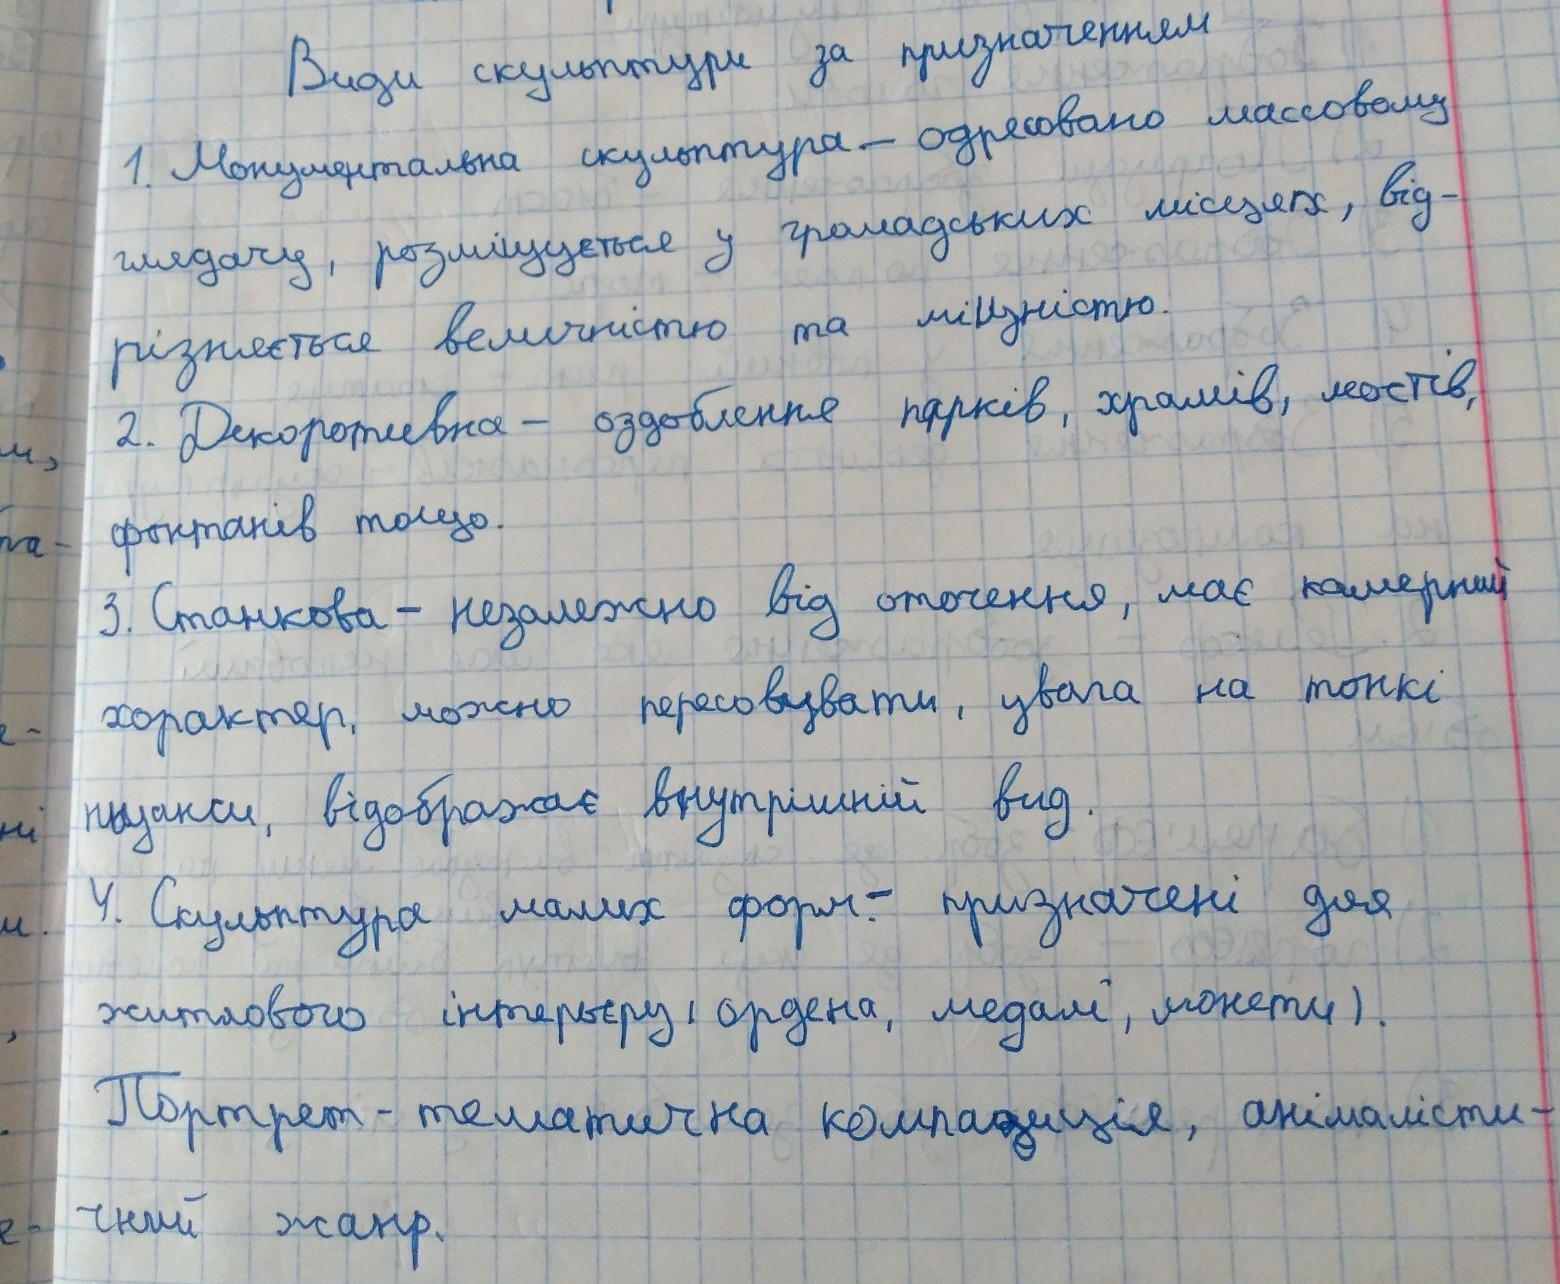 Види скульптури за призначенням
1. Монументальна скульптура – одресовано массовому
глядачу, розміщується у громадських місцях, від-
різняється величністю та міцзністю.
2. Декоротивна – оздоблення парків, храмів, мостів,
фонтанів тощо.
3. Станкова – незалежно від оточення, має камерний
характер, можно пересовувати, увага на тонкі
нюанси, відображає внутрішній вид.
4. Скульптура малих форм – призначені для
житлового інтерьєру (ордена, медалі, монети).
Портрет – тематична композиція, анімалісти-
чний жанр.